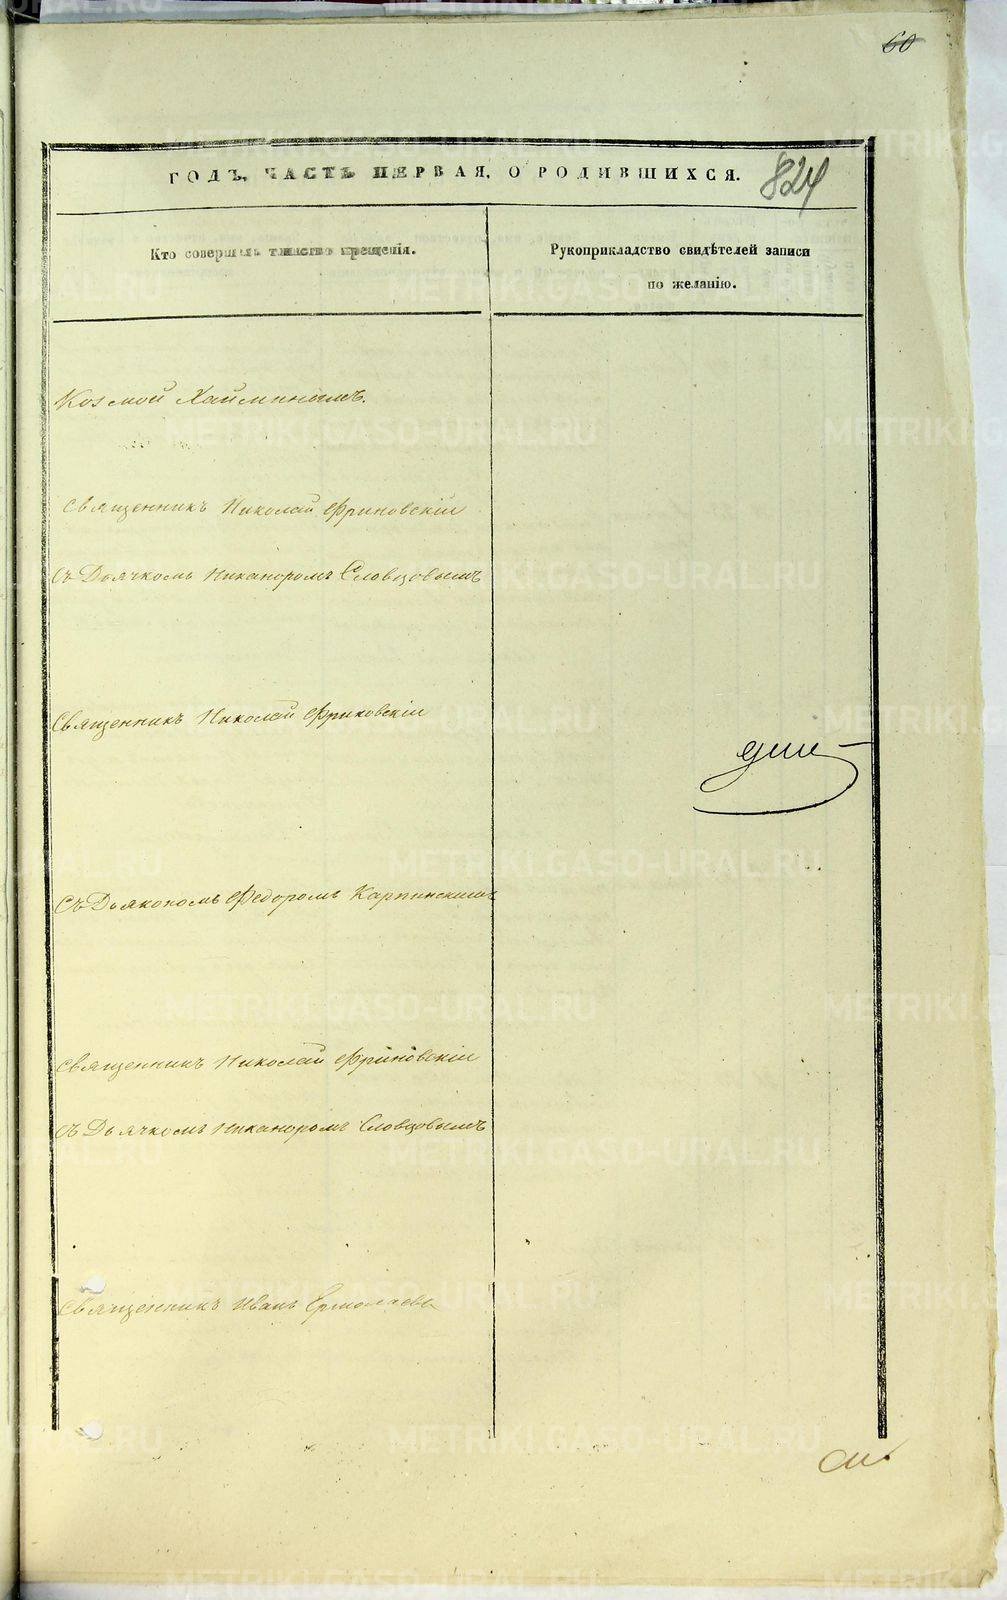 60
ГОДЪ, ЧАСТЬ ПЕРВАЯ, О РОДИВШИХСЯ.
824
Кто совершалъ таинство крещенія.
Рукоприкладство свидѣтелей записи
по желанію.
Козмой Хайминымъ.
Священникъ Николай Фриновскій
съ Дьячкомъ Никаноромъ Словцовымъ
Священникъ Николай Фриновскій
съ Дьякономъ Федоромъ Карпинскимъ
Священникъ Николай Фриновскій
съ Дьячкомъ Никаноромъ Словцовымъ
Священникъ Иванъ Ермолаевъ
METRIKI.GASO-URAL.RU